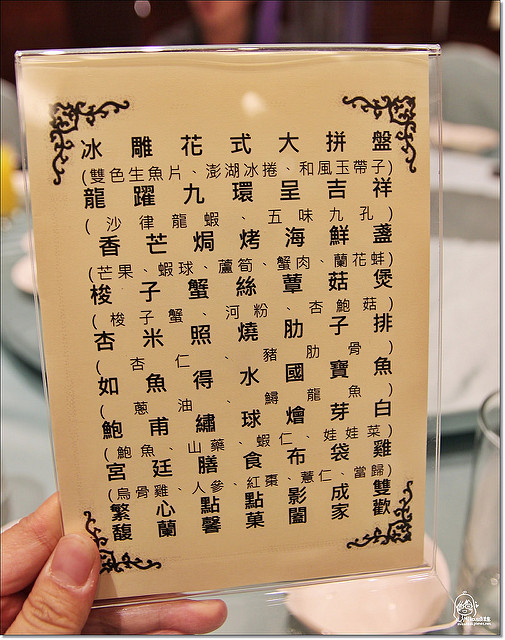 冰雕花式大拼盤
(雙色生魚片、澎湖冰捲、和風玉帶子)
龍躍九環呈吉祥
(沙律龍蝦、五味九孔)
香芒焗烤海鮮盞
(芒果、蝦球、蘆筍、蟹肉、蘭花蚌)
梭子蟹絲蕈菇煲
(梭子蟹、河粉、杏鮑菇)
杏米照燒肋子排
(杏仁、豬肋骨)
如魚得水國寶魚
(蔥油、鱘龍魚)
鮑甫繡球燴芽白
(鮑魚、山藥、蝦仁、娃娃菜)
宮廷膳食布袋雞
(烏骨雞、人參、紅棗、薏仁、當歸)
繁心點點影成雙
馥蘭馨菓闔家歡